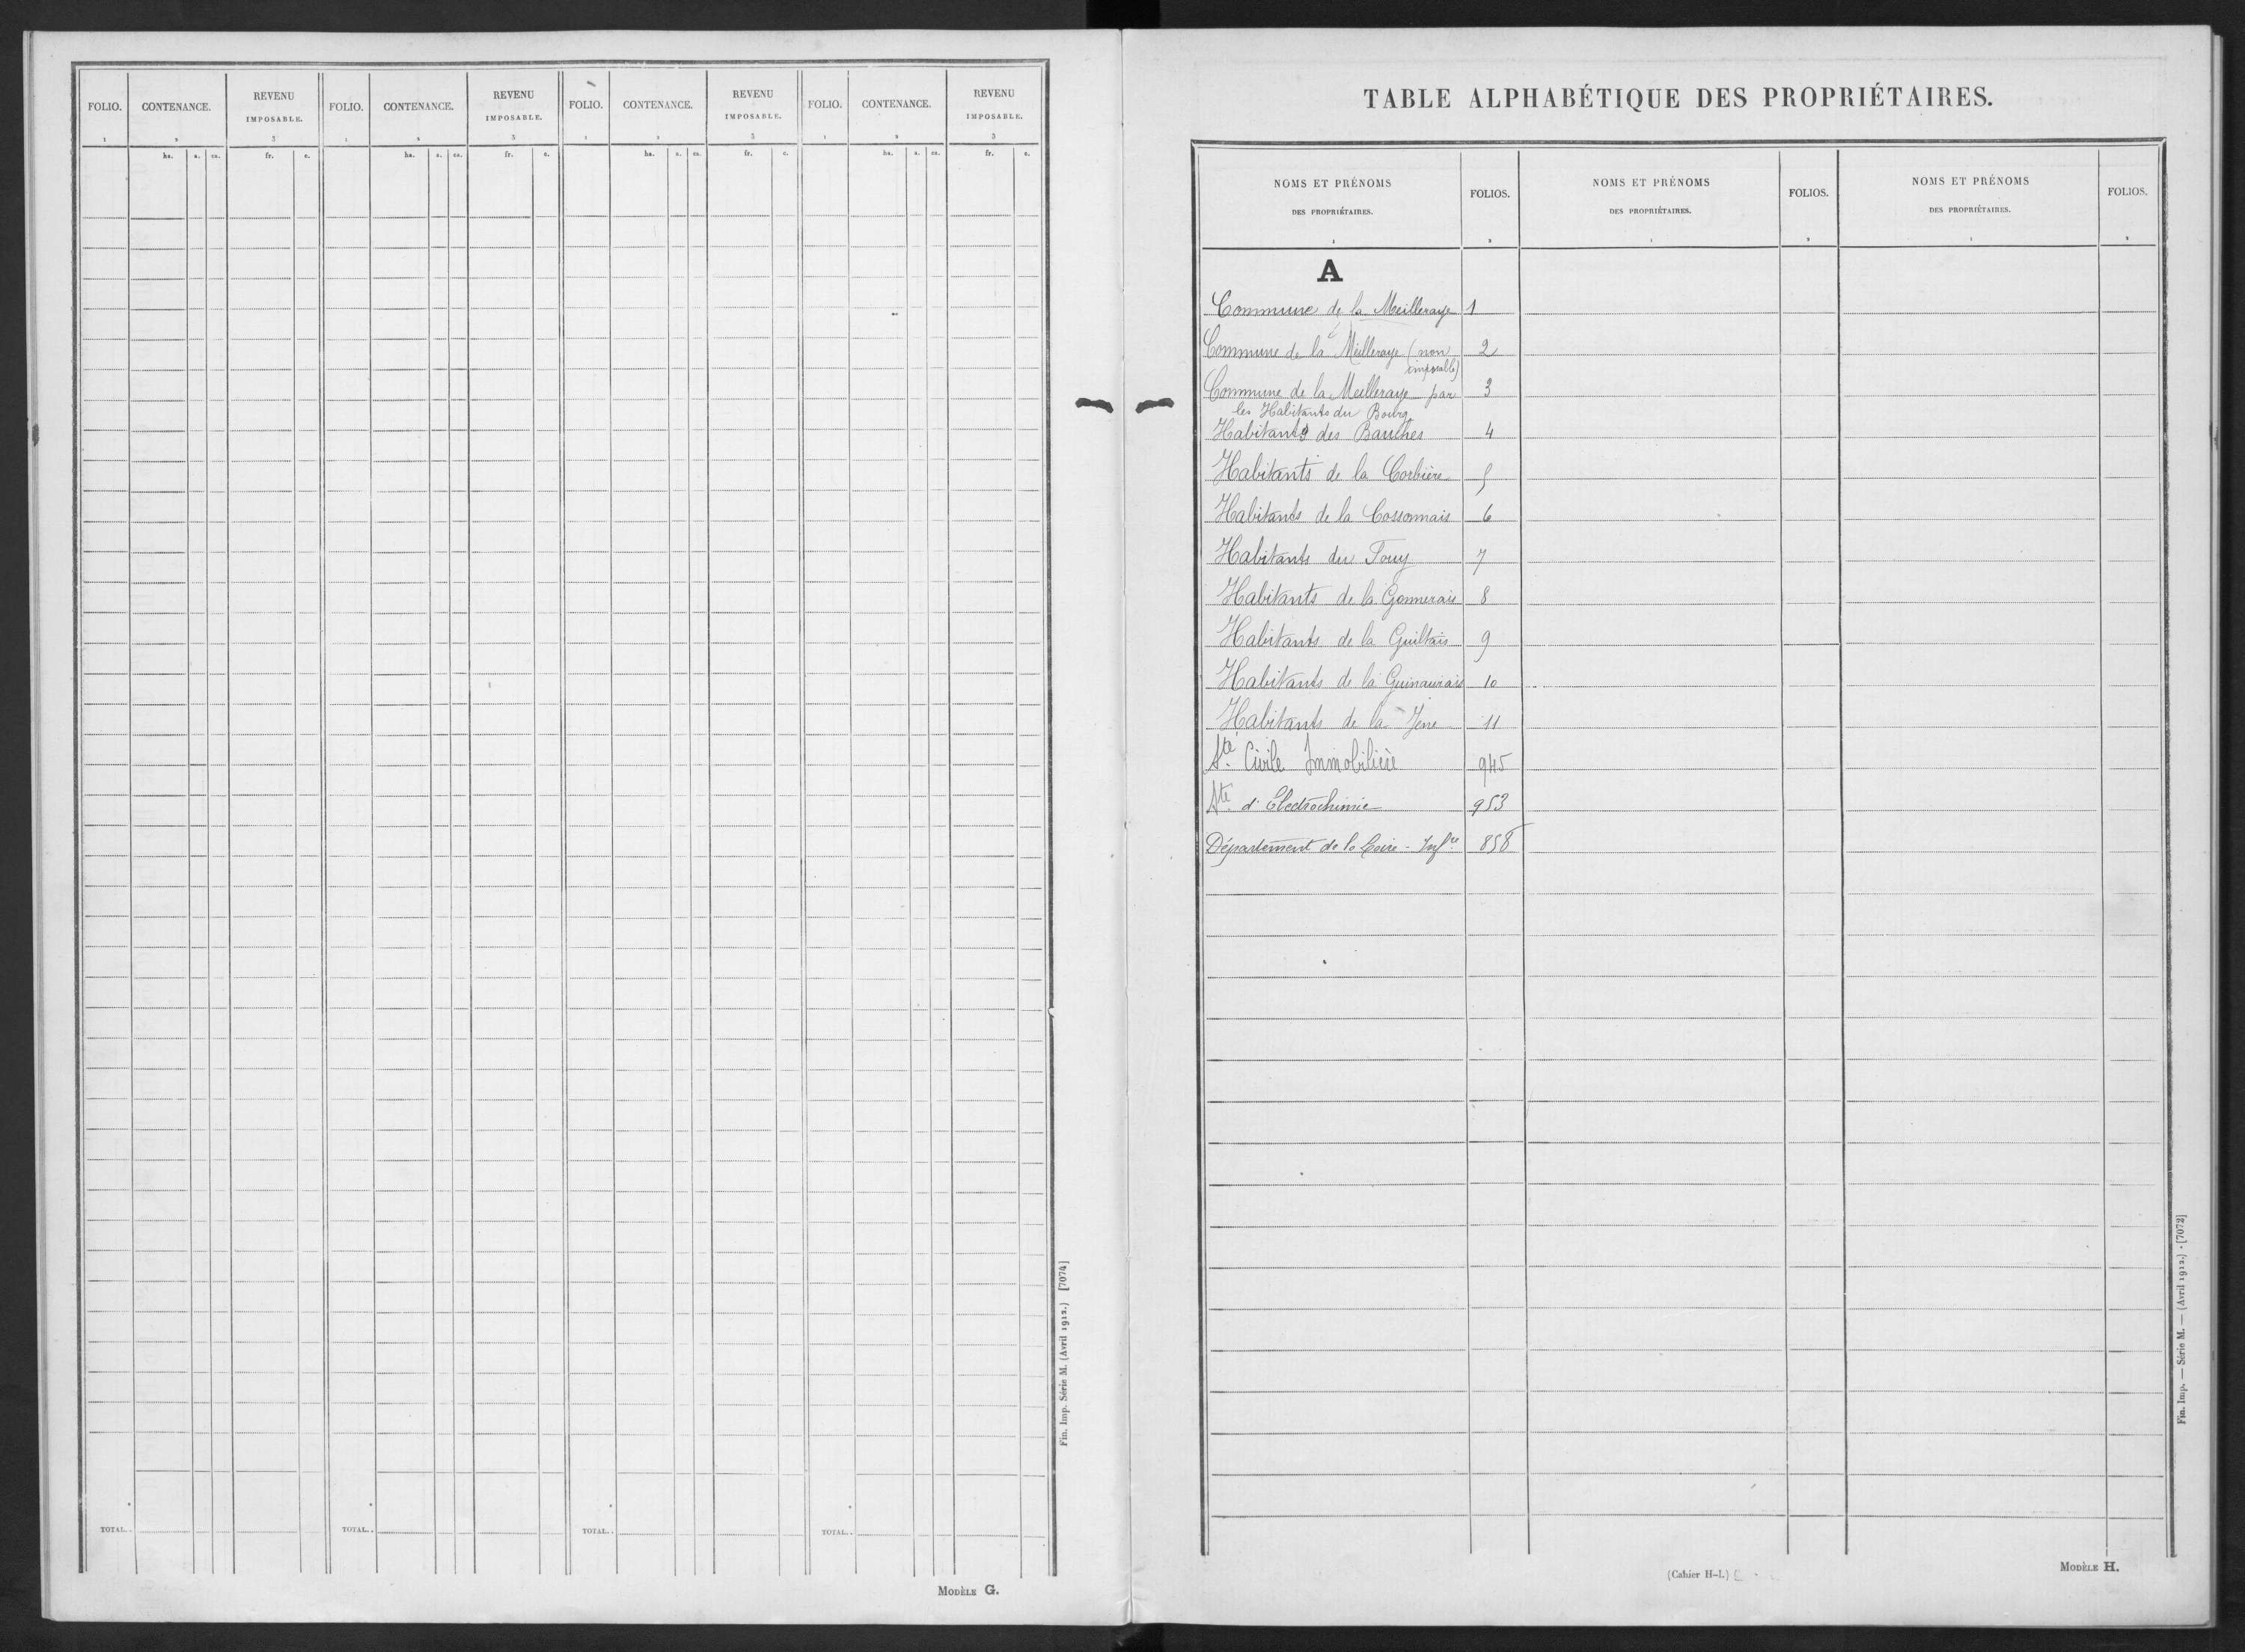 FOLIO. CONTENANCE. REVENU IMPOSABLE. FOLIO. CONTENANCE. REVENU IMPOSABLE. FOLIO. CONTENANCE. REVENU IMPOSABLE. FOLIO. CONTENANCE. REVENU IMPOSABLE.
1 2 3 1 2 3 1 2 3 1 2 3
ha. a. ca. fr. c. ha. a. ca. fr. c. ha. a. ca. fr. c. ha. a. ca. fr. c.
TOTAL.. TOTAL.. TOTAL.. TOTAL..
Fin. Imp. Série M. (Avril 1912.) [7074]
MODÈLE G.
TABLE ALPHABÉTIQUE DES PROPRIÉTAIRES.
NOMS ET PRÉNOMS DES PROPRIÉTAIRES. FOLIOS. NOMS ET PRÉNOMS DES PROPRIÉTAIRES. FOLIOS. NOMS ET PRÉNOMS DES PROPRIÉTAIRES. FOLIOS.
1 2 1 2 1 2
A
Commune de la Meilleraye 1
Commune de la Meilleraye (non 2
imposable)
Commune de la Meilleraye par 3
les Habitants du Bourg
Habitants des Bauches 4
Habitants de la Corbière 5
Habitants de la Cossonnais 6
Habitants du Fouy 7
Habitants de la Gonnerais 8
Habitants de la Guiltais 9
Habitants de la Guinaurais 10
Habitants de la 11
Sté Civile Immobilière 945
Sté d'Electrochimie 953
Département de la Loire-Infre 858
(Cahier H-I.)
MODÈLE H.
Fin. Imp. — Série M. — (Avril 1912.) - [7072]